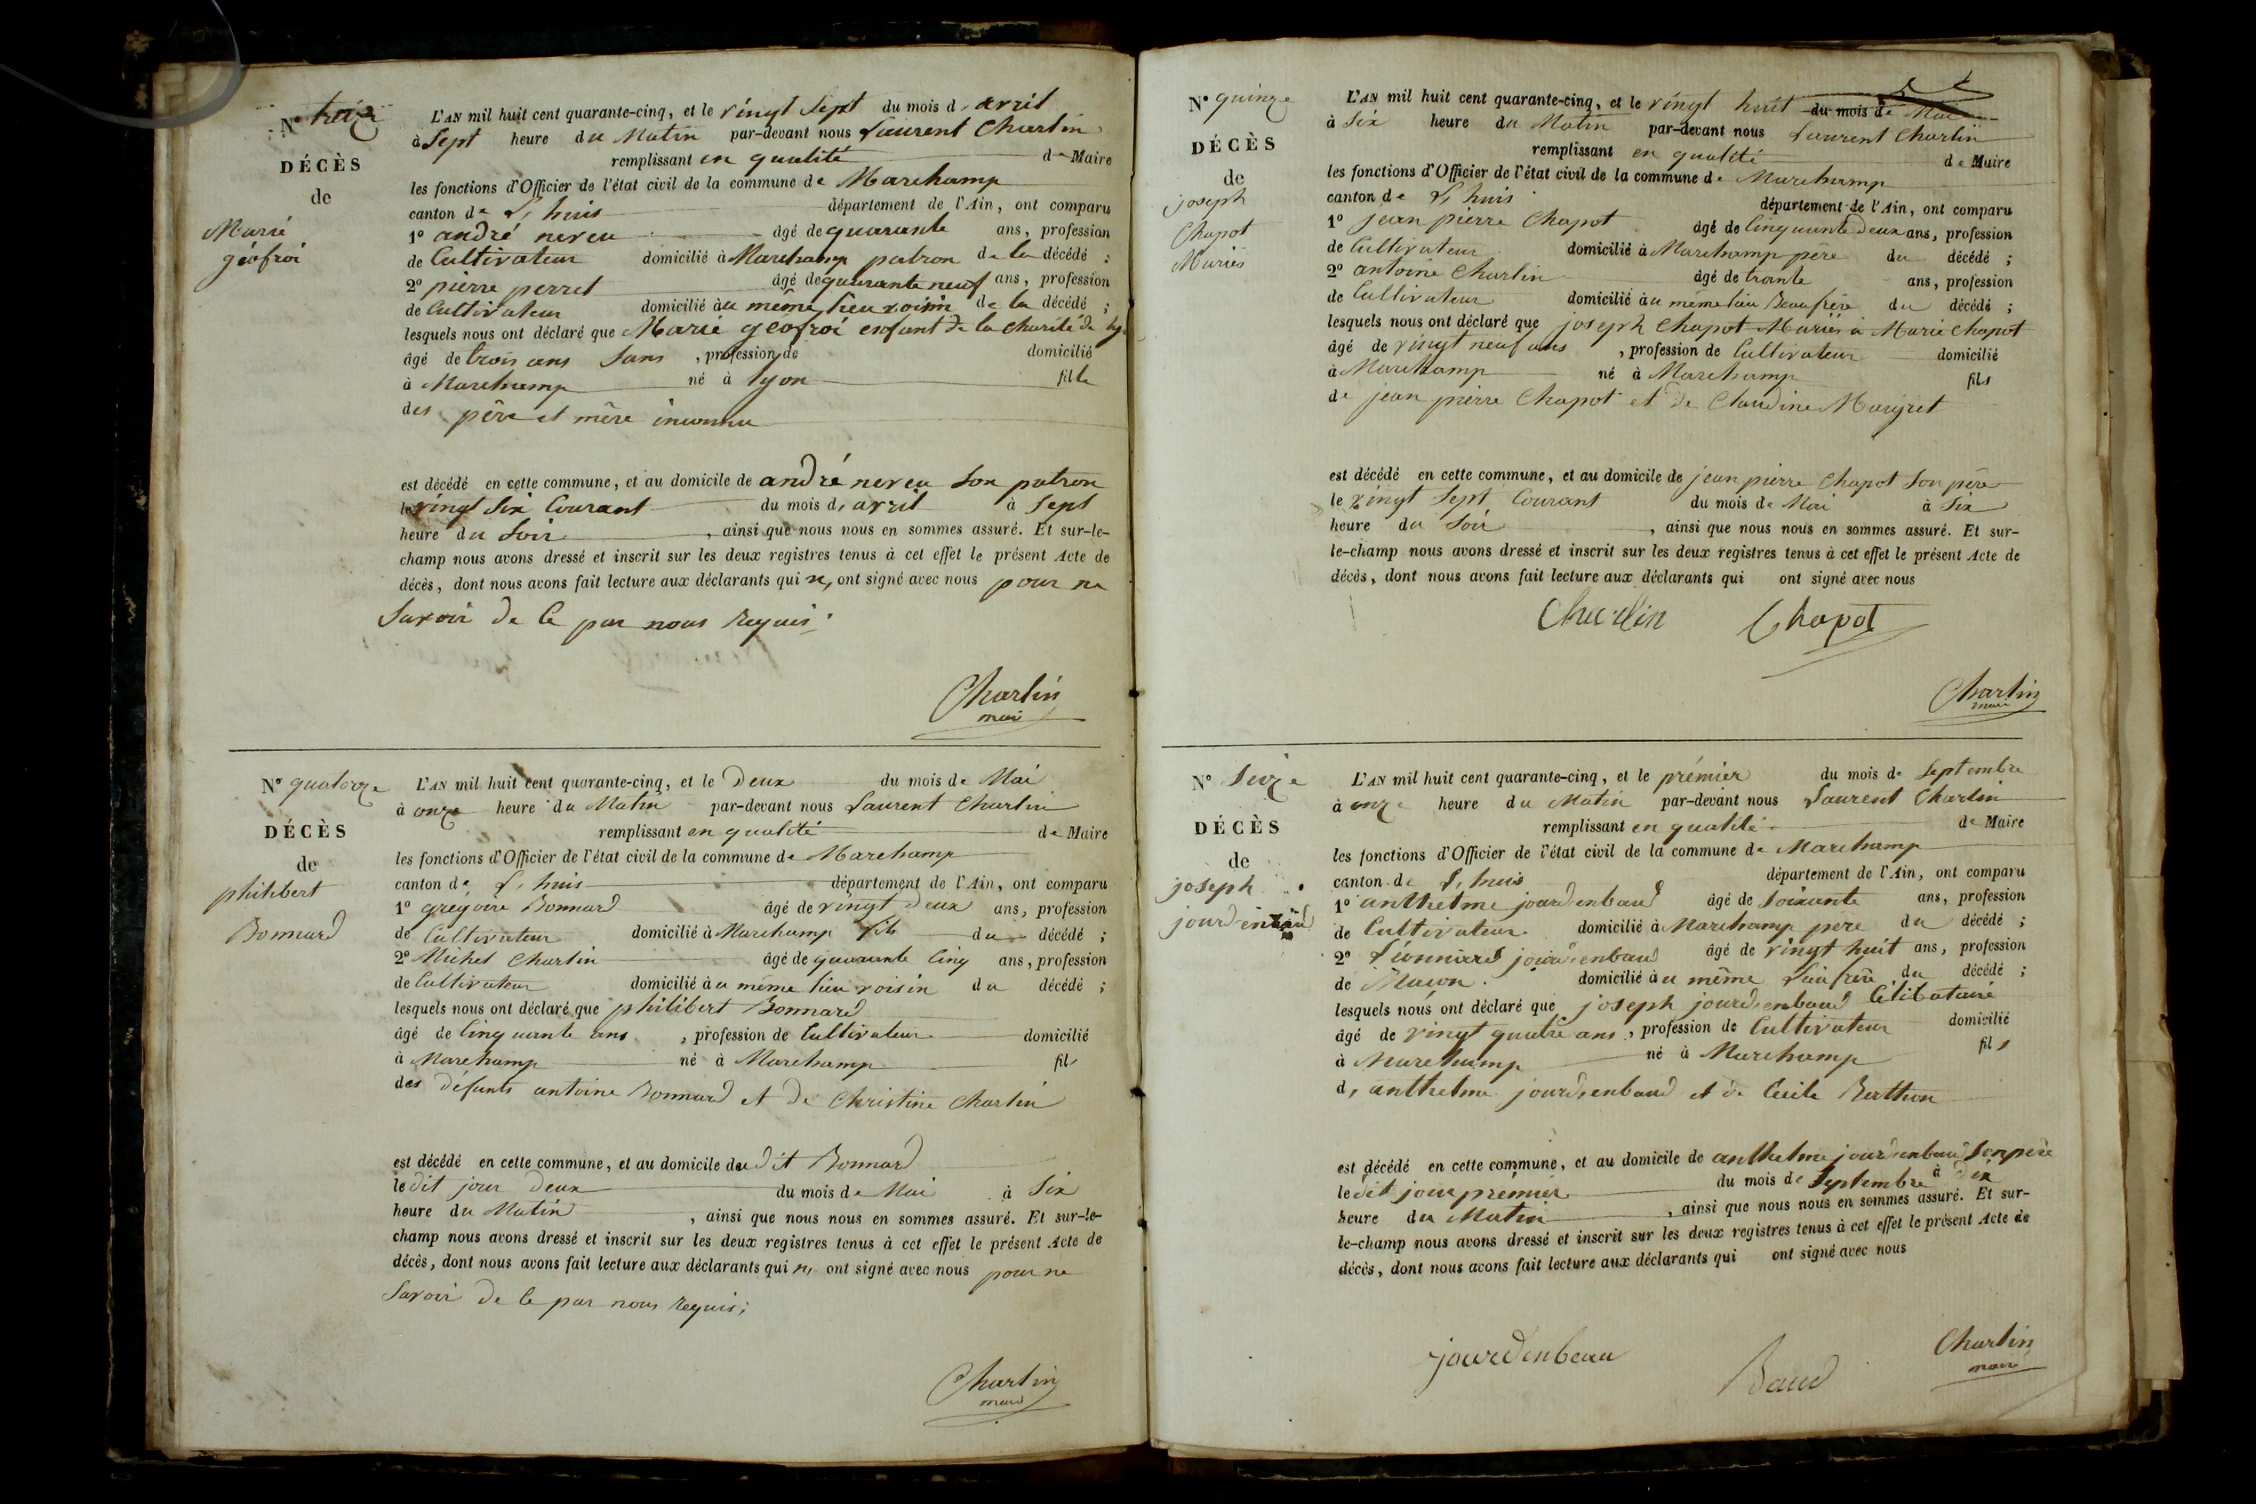 N° treize
DÉCÈS
de
Marie
géofroi
L'AN mil huit cent quarante-cinq, et le vingt Sept du mois d, avril
à Sept heure du Matin par-devant nous Laurent Charlin
remplissant en qualité de Maire
les fonctions d'Officier de l'état civil de la commune de Marchamp
canton de L, huis département de l'Ain, ont comparu
1° andré neveu âgé de quarante ans, profession
de Cultivateur domicilié à Marchamp patron de la décédé ;
2° pierre perret âgé de quarante neuf ans, profession
de Cultivateur domicilié au même lieu voisin de la décédé ;
lesquels nous ont déclaré que Marie géofroi enfant de la charité de
âgé de trois ans Sans , profession de domicilié
à Marchamp né à lyon fille
des père et mère inconnu
est décédé en cette commune, et au domicile de andré neveu Son patron
le vingt Six Courant du mois d, avril à Sept
heure du Soir , ainsi que nous nous en sommes assuré. Et sur-le-
champ nous avons dressé et inscrit sur les deux registres tenus à cet effet le présent Acte de
décès, dont nous avons fait lecture aux déclarants qui n, ont signé avec nous pour ne
Savoir de Ce par nous requis.
Charlin
maire
N° quatorze
DÉCÈS
de
philibert
Bonnard
L'AN mil huit cent quarante-cinq, et le Deux du mois de Mai
à onze heure du Matin par-devant nous Laurent Charlin
remplissant en qualité de Maire
les fonctions d'Officier de l'état civil de la commune de Marchamp
canton de L, huis département de l'Ain, ont comparu
1° gregoire Bonnard âgé de vingt Deux ans, profession
de Cultivateur domicilié à Marchamp fils du décédé ;
2° Michel Charlin âgé de quarante Cinq ans, profession
de Cultivateur domicilié au même lieu voisin du décédé ;
lesquels nous ont déclaré que philibert Bonnard
âgé de Cinquante ans , profession de Cultivateur domicilié
à Marchamp né à Marchamp fils
des défunts antoine Bonnard et De Christine Charlin
est décédé en cette commune, et au domicile du dit Bonnard
le dit jour Deux du mois de Mai à Six
heure du Matin , ainsi que nous nous en sommes assuré. Et sur-le-
champ nous avons dressé et inscrit sur les deux registres tenus à cet effet le présent Acte de
décès, dont nous avons fait lecture aux déclarants qui n, ont signé avec nous pour ne
Savoir de Ce par nous requis;
Charlin
maire
N° quinze
DÉCÈS
de
joseph
Chapot
Mariés
L'AN mil huit cent quarante-cinq, et le vingt huit du mois de Mai
à Six heure du Matin par-devant nous Laurent Charlin
remplissant en qualité de Maire
les fonctions d'Officier de l'état civil de la commune de Marchamp
canton de L, huis département de l'Ain, ont comparu
1° jean pierre Chapot âgé de Cinquante Deux ans, profession
de Cultivateur domicilié à Marchamp père du décédé ;
2° antoine Charlin âgé de trante ans, profession
de Cultivateur domicilié au même lieu Beaufrère du décédé ;
lesquels nous ont déclaré que joseph Chapot Mariés à Marie Chapot
âgé de vingt neuf ans , profession de Cultivateur domicilié
à Marchamp né à Marchamp fils
de jean pierre Chapot et De Claudine
est décédé en cette commune, et au domicile de jean pierre Chapot Son père
le vingt Sept Courant du mois de Mai à Six
heure du Soir , ainsi que nous nous en sommes assuré. Et sur-
le-champ nous avons dressé et inscrit sur les deux registres tenus à cet effet le présent Acte de
décès, dont nous avons fait lecture aux déclarants qui ont signé avec nous
Charlin Chapot
Charlin
maire
N° Seize
DÉCÈS
de
joseph
L'AN mil huit cent quarante-cinq, et le prémier du mois de Septembre
à onze heure du Matin par-devant nous Laurent Charlin
remplissant en qualité de Maire
les fonctions d'Officier de l'état civil de la commune de Marchamp
canton de L, huis département de l'Ain, ont comparu
1° anthelme jourd,enbaud âgé de Soixante ans, profession
de Cultivateur domicilié à Marchamp père du décédé ;
2° Léonnard jourd,enbaud âgé de vingt huit ans, profession
de Macon domicilié au même Lieu frère du décédé ;
lesquels nous ont déclaré que joseph jourd,enbaud Célibataire
âgé de vingt quatre ans , profession de Cultivateur domicilié
à Marchamp né à Marchamp fils
d, anthelme jourd,enbaud et de Cecile Berthon
est décédé en cette commune, et au domicile de anthelme jourd,enbaud Son père
le dit jour prémier du mois de Septembre à dix
heure du Matin , ainsi que nous nous en sommes assuré. Et sur-
le-champ nous avons dressé et inscrit sur les deux registres tenus à cet effet le présent Acte de
décès, dont nous avons fait lecture aux déclarants qui ont signé avec nous
jourdenbeau
Baud
Charlin
maire